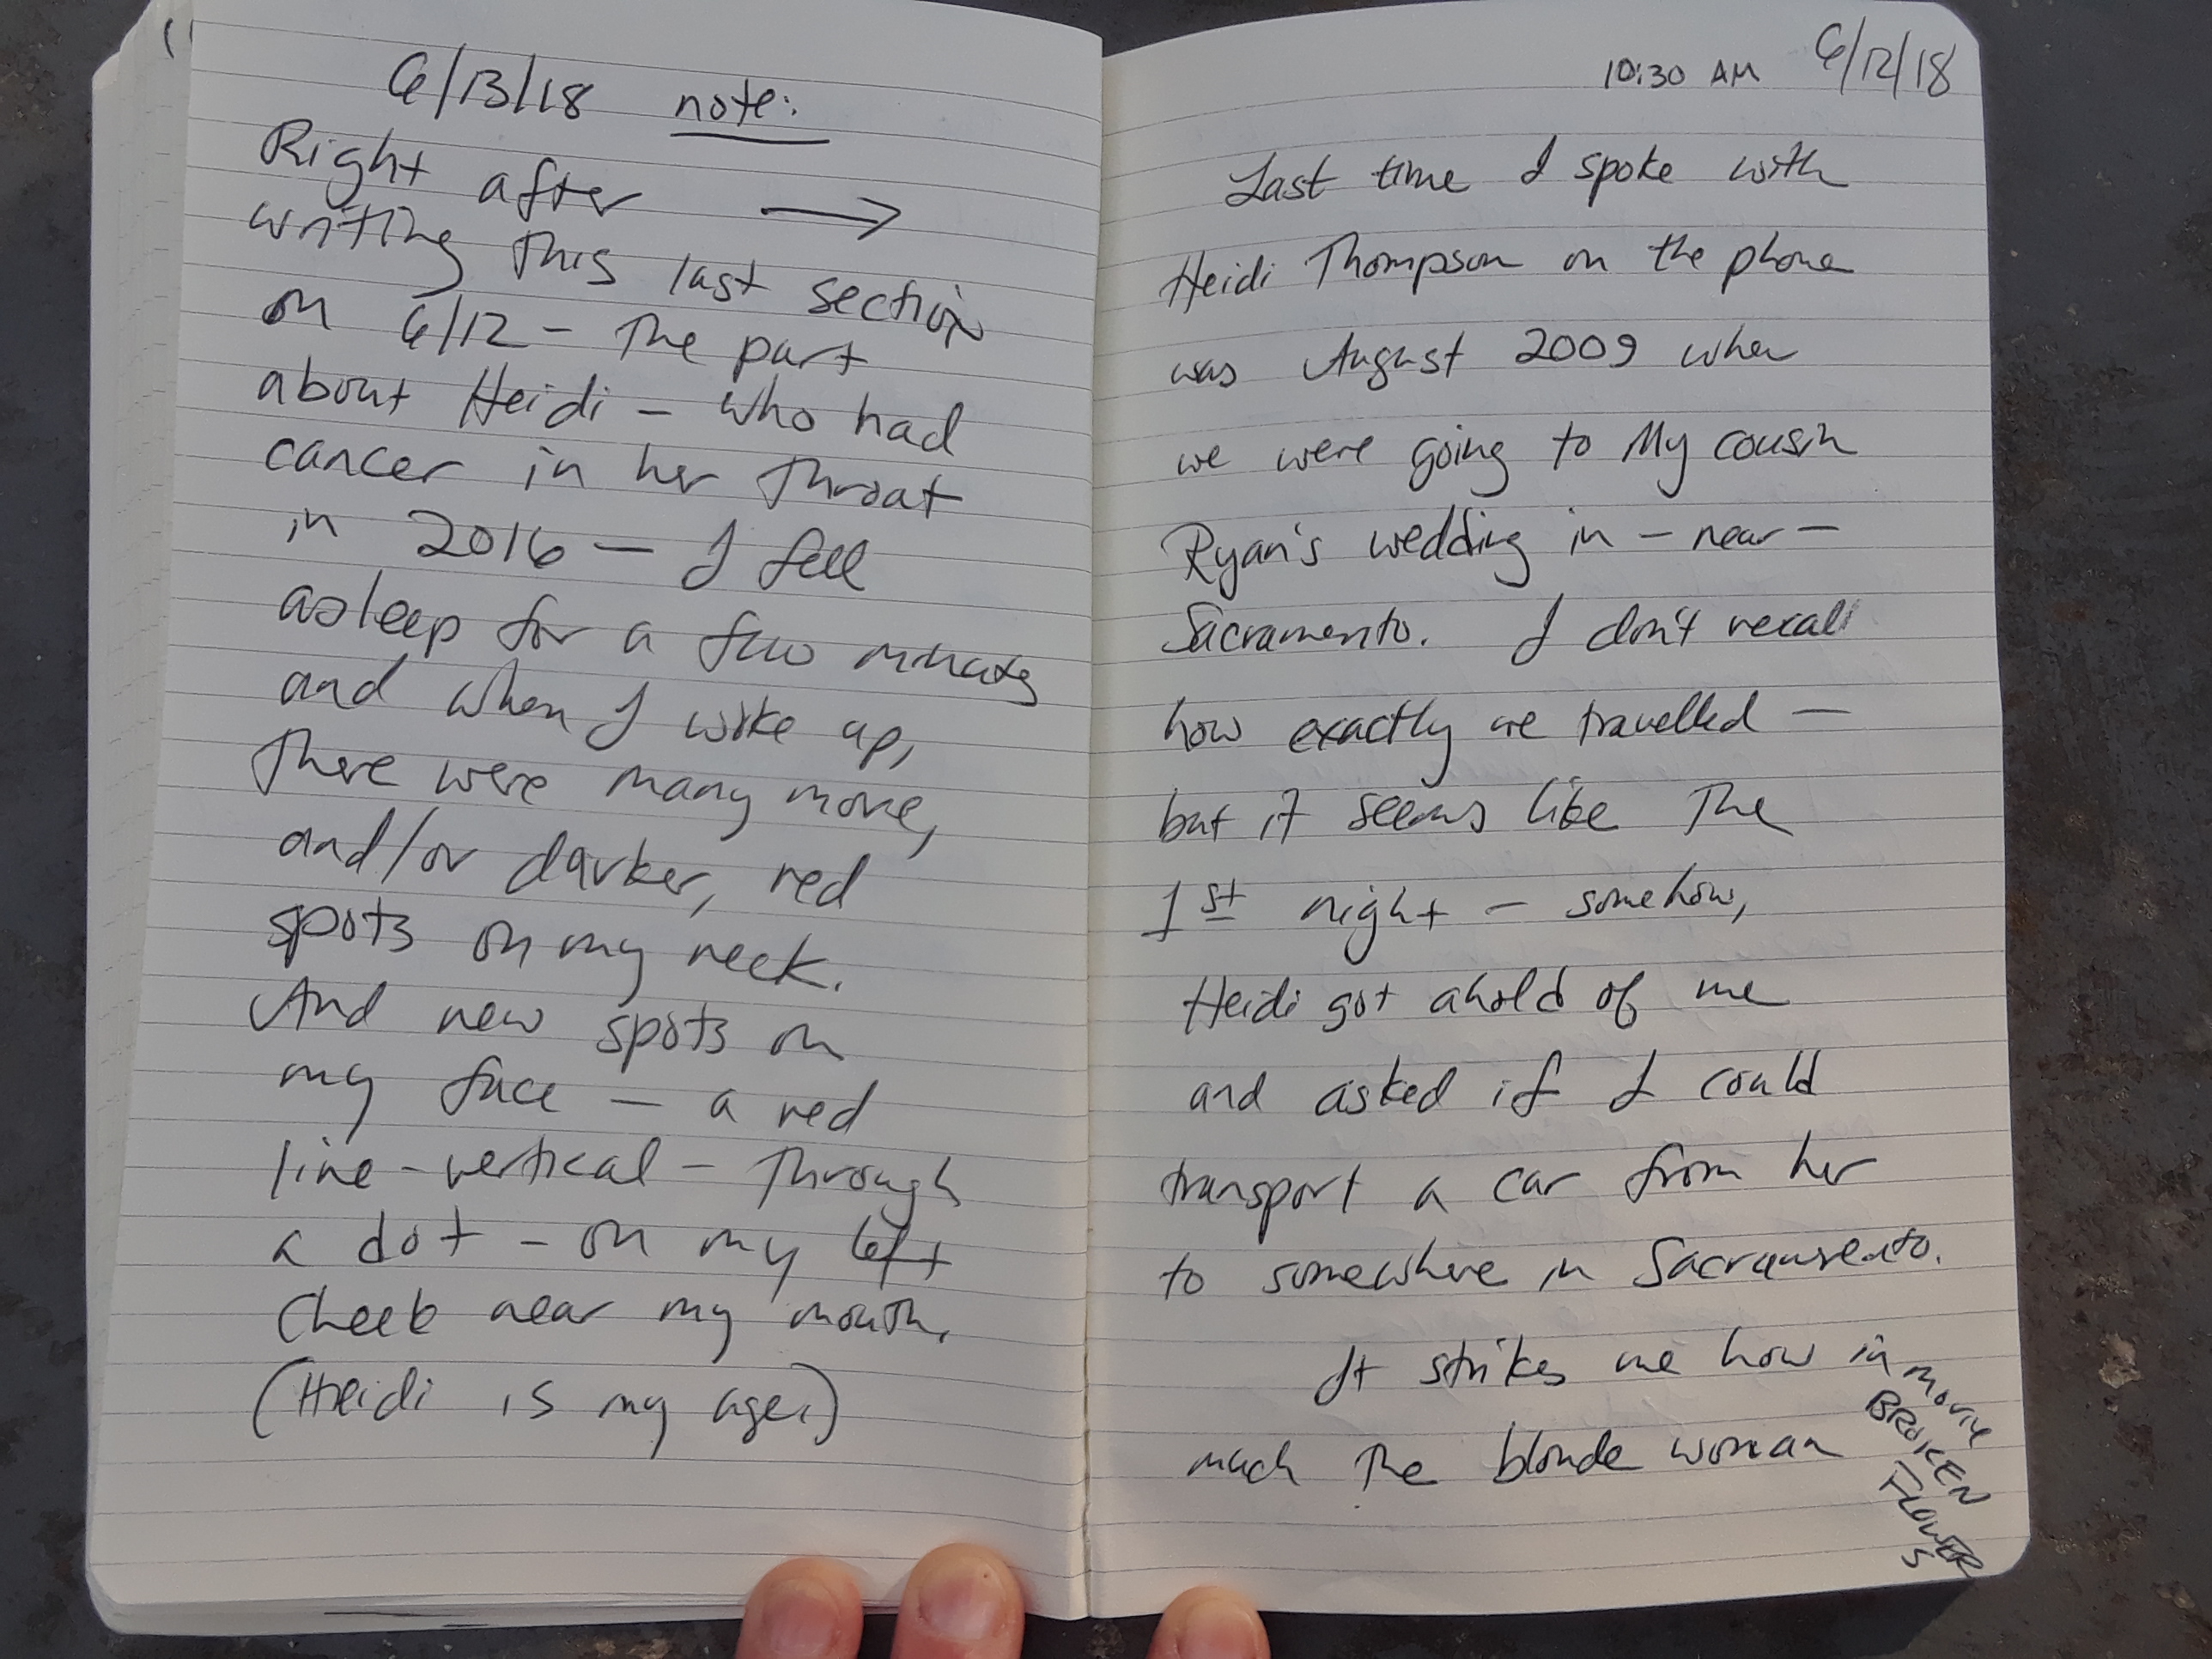 6/13/18 note:
Right after →
writing this last section
on 6/12 – The part
about Heidi – who had
cancer in her Throat
in 2016 — I fell
asleep for a few minutes
and when I woke up,
There were many more,
and/or darker, red
spots on my neck.
And new spots on
my face – a red
line - vertical – Through
a dot – on my left
cheek near my mouth.
(Heidi is my age.)
10:30 AM 6/12/18
Last time I spoke with
Heidi Thompson on the phone
was August 2009 when
we were going to My cousin
Ryan's wedding in – near –
Sacramento. I don't recall
how exactly we travelled —
but it seems like The
1st night – somehow,
Heidi got ahold of me
and asked if I could
transport a car from her
to somewhere in Sacramento.
It strikes me how in movie
BROKEN
FLOWER
S
much The blonde woman